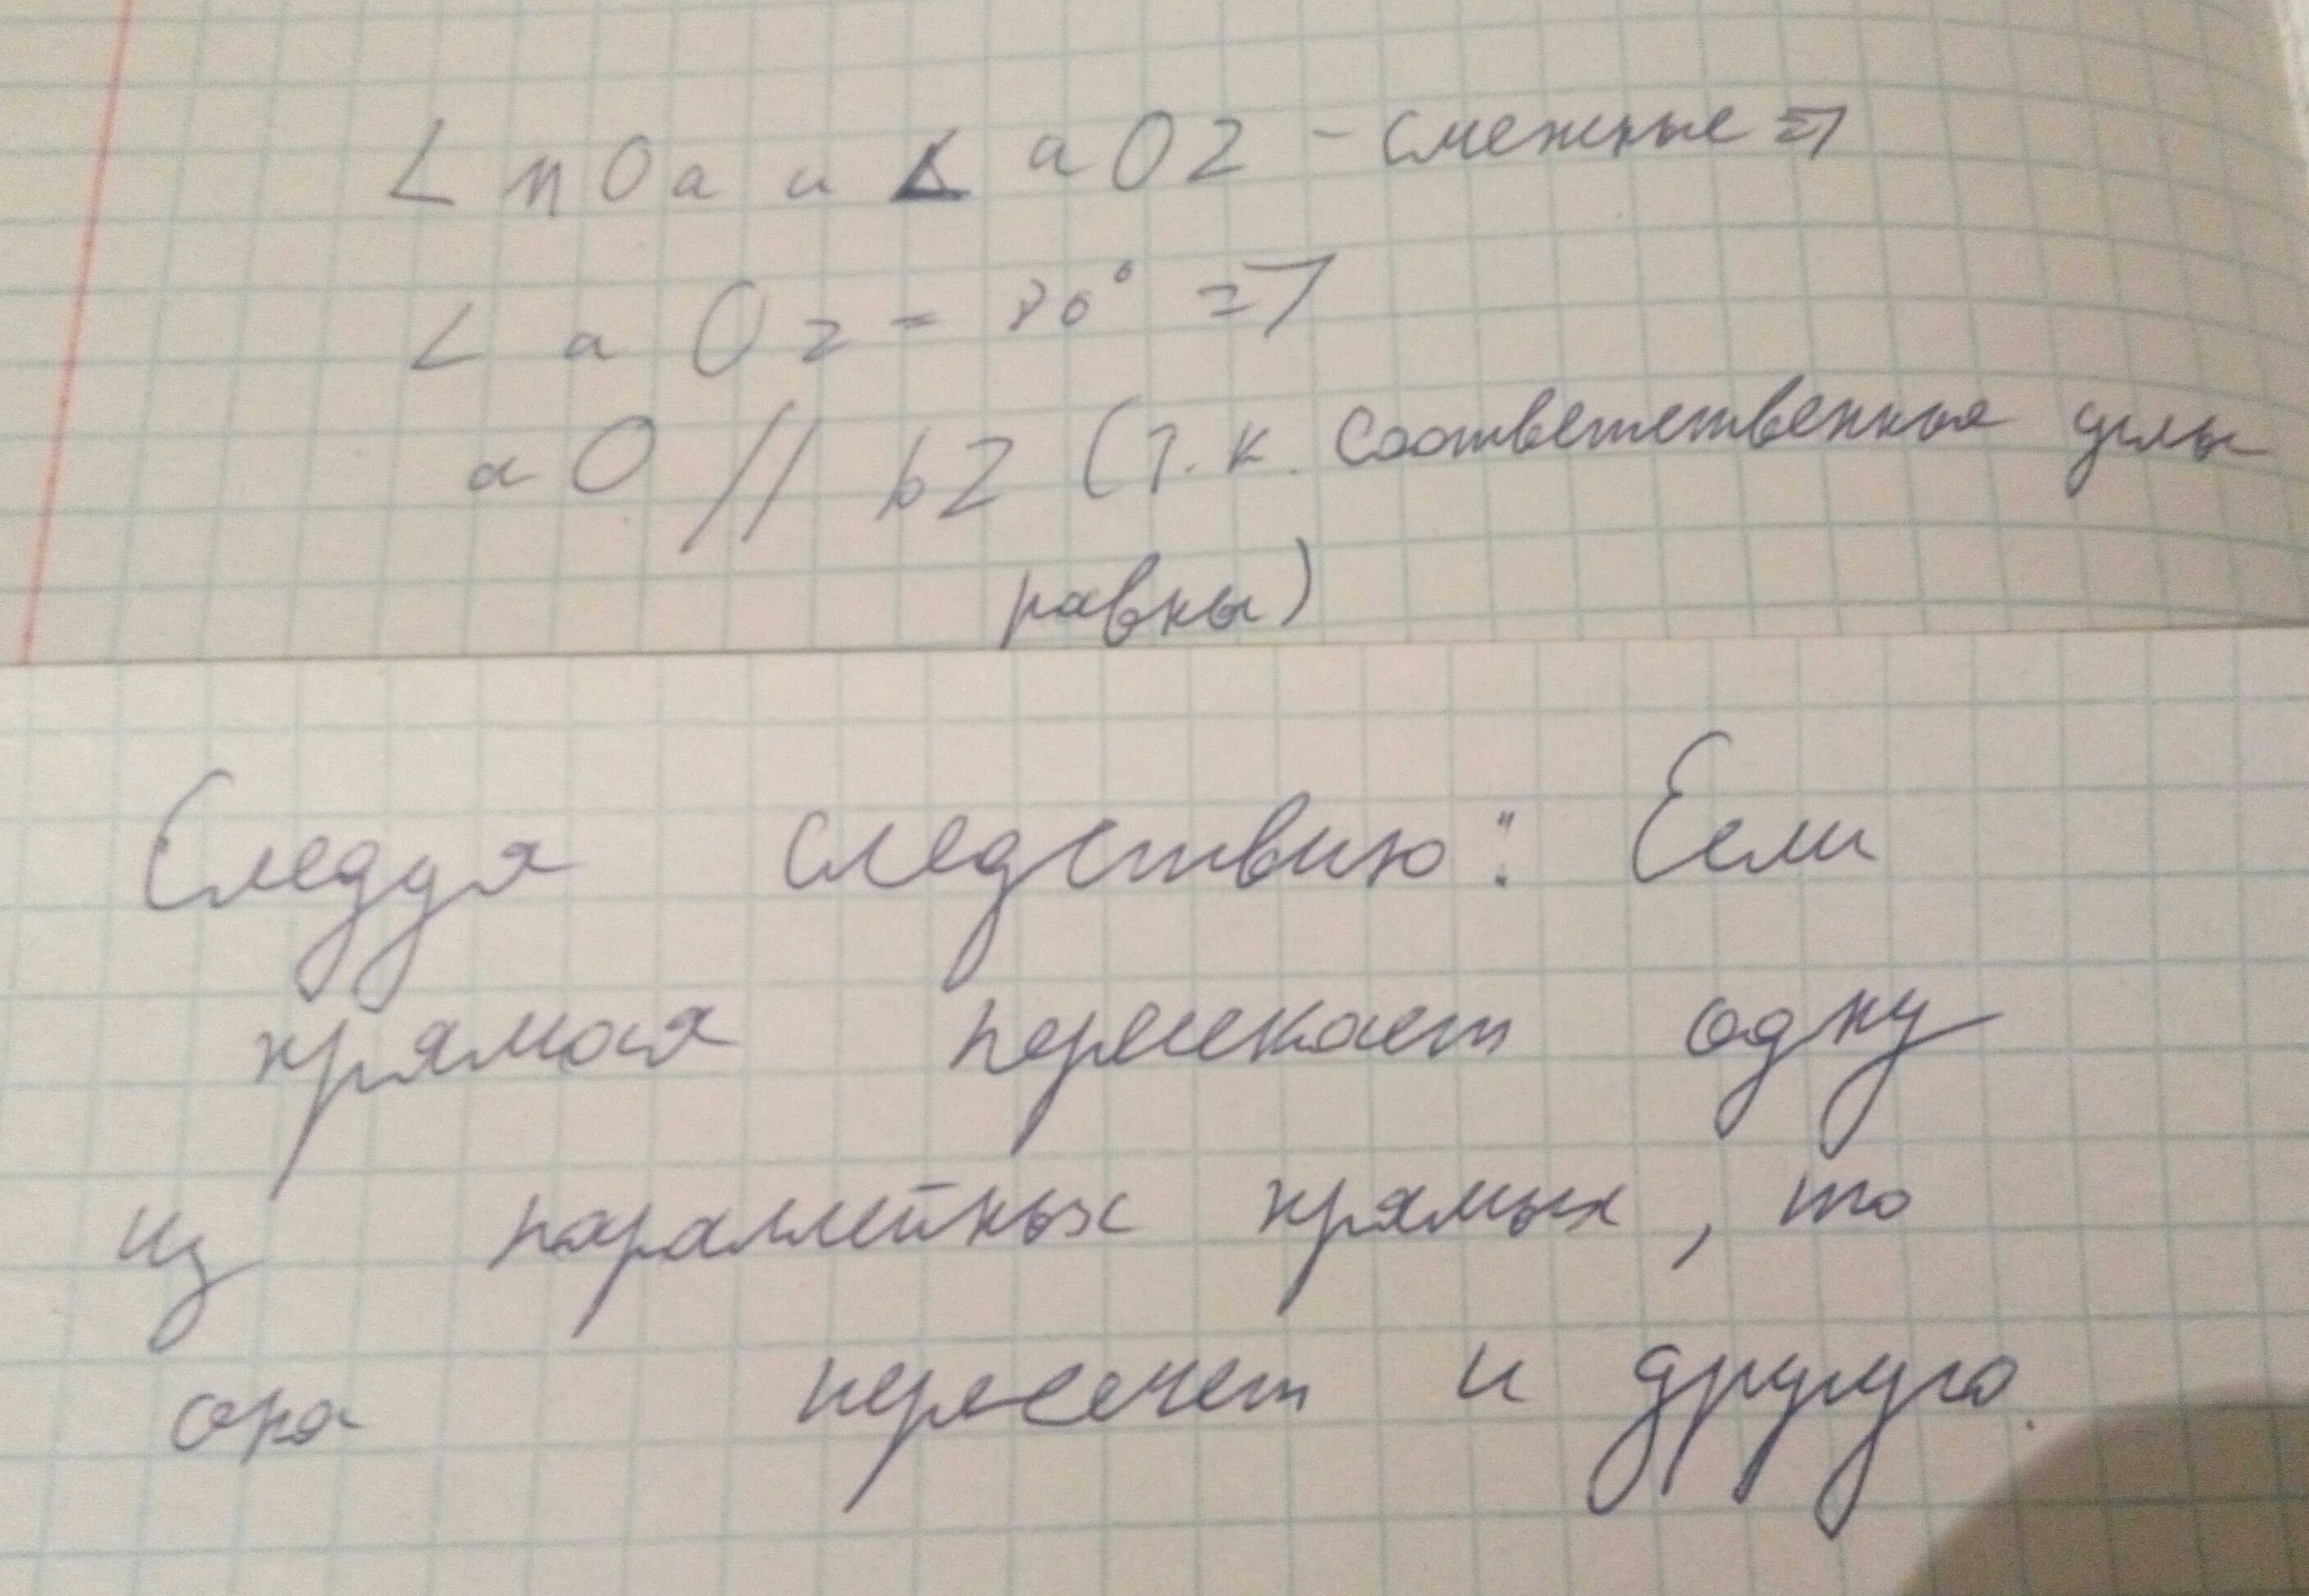 ∠ nOa и ∠ aO2 - смежные =>
∠ aO2 = 80° =>
aO // b2 (т.к. соответственные углы
равны)
Следуя следствию: Если
прямая пересекает одну
из параллейных прямых, то
она пересечет и другую.